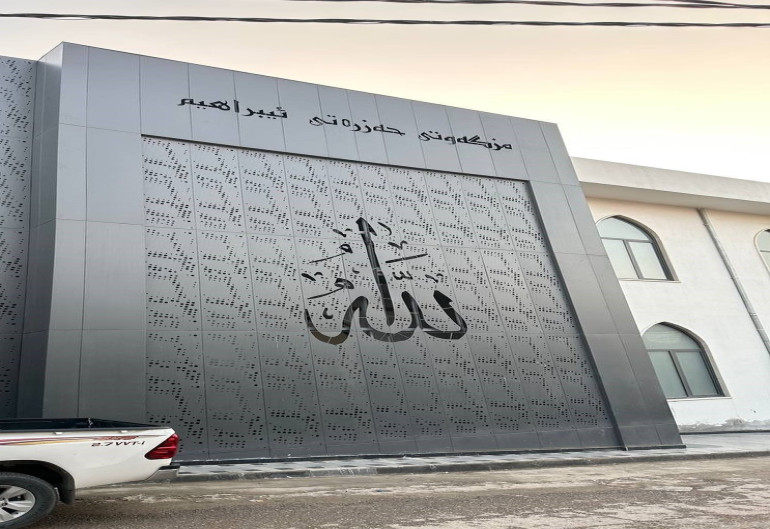 مزگەوتی حەزرەتی ئیبراهیم
الله
2.7VVT-i